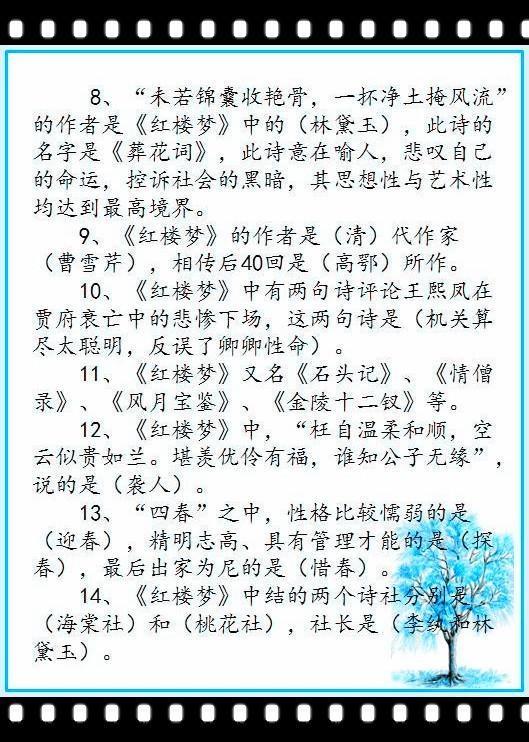 8、“未若锦囊收艳骨，一抔净土掩风流”
的作者是《红楼梦》中的（林黛玉），此诗的
名字是《葬花词》，此诗意在喻人，悲叹自己
的命运，控诉社会的黑暗，其思想性与艺术性
均达到最高境界。
9、《红楼梦》的作者是（清）代作家
（曹雪芹），相传后40回是（高鄂）所作。
10、《红楼梦》中有两句诗评论王熙凤在
贾府衰亡中的悲惨下场，这两句诗是（机关算
尽太聪明，反误了卿卿性命）。
11、《红楼梦》又名《石头记》、《情僧
录》、《风月宝鉴》、《金陵十二钗》等。
12、《红楼梦》中，“枉自温柔和顺，空
云似贵如兰。堪羡优伶有福，谁知公子无缘”，
说的是（袭人）。
13、“四春”之中，性格比较懦弱的是
（迎春），精明志高、具有管理才能的是（探
春），最后出家为尼的是（惜春）。
14、《红楼梦》中结的两个诗社分别是
（海棠社）和（桃花社），社长是（李纨和林
黛玉）。